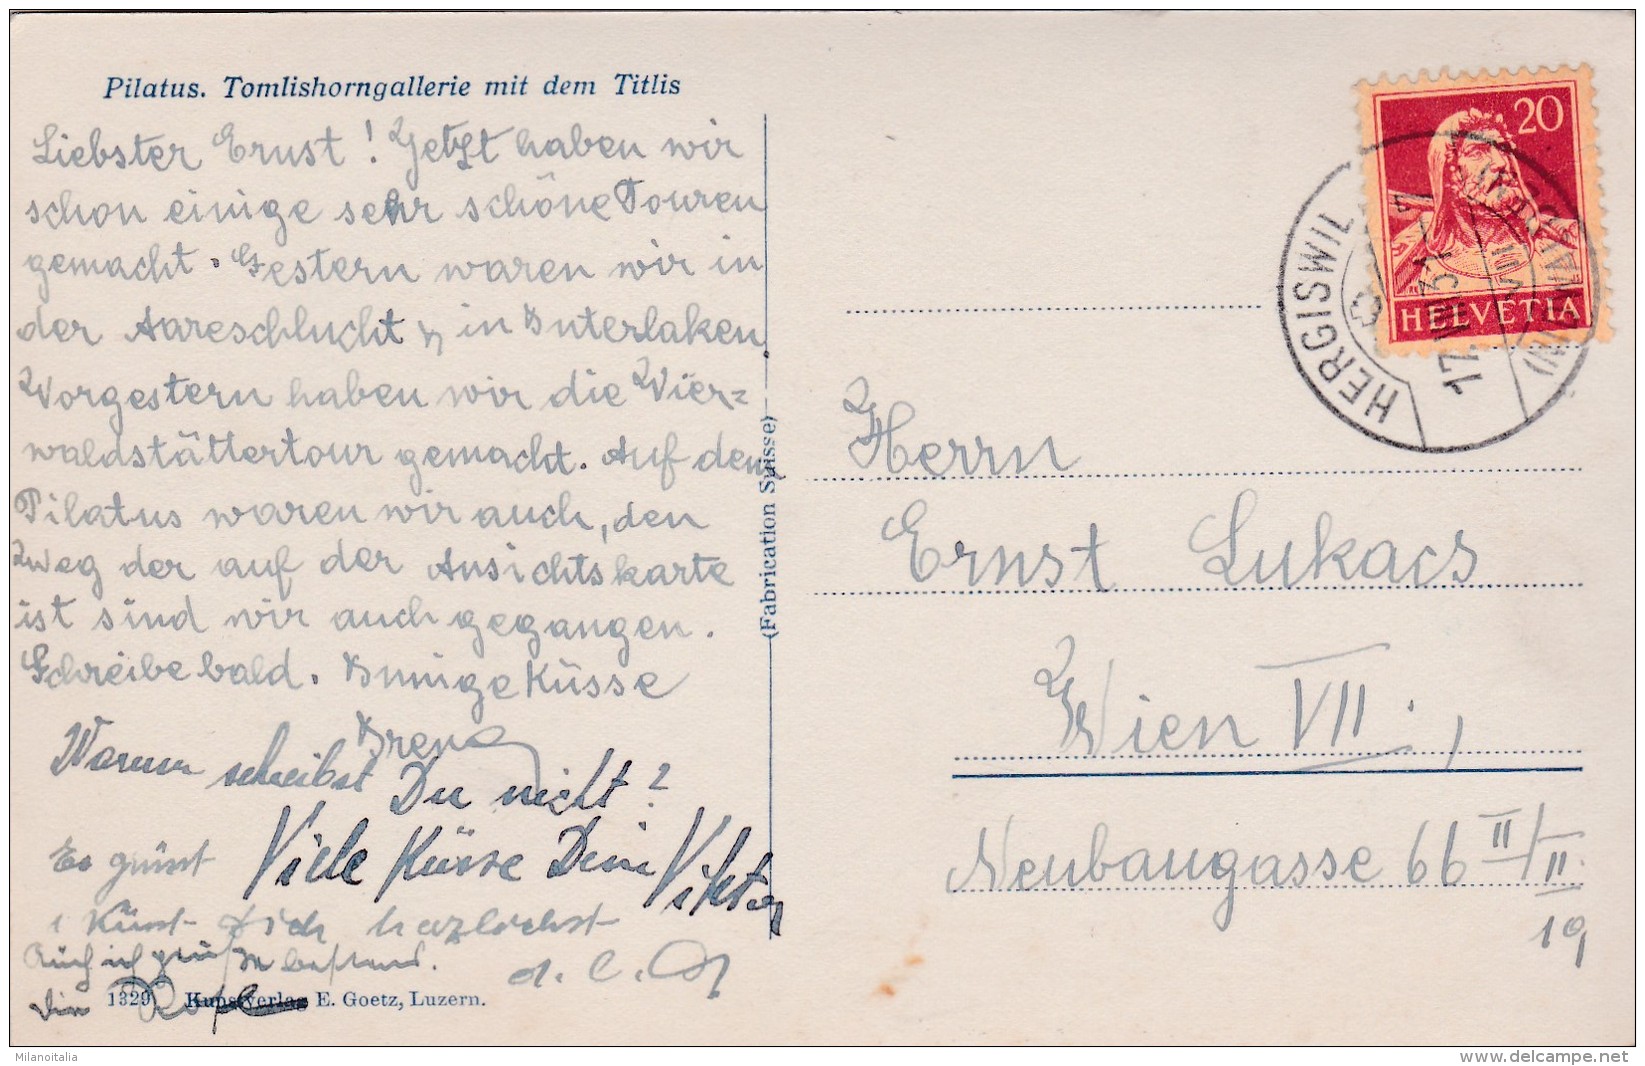 Pilatus. Tomlishorngallerie mit dem Titlis
Liebster Ernst! Jetzt haben wir
schon einige sehr schöne Touren
gemacht. Gestern waren wir in
der Aareschlucht u. in Interlaken.
Vorgestern haben wir die Vier=
waldstättertour gemacht. Auf dem
Pilatus waren wir auch, den
Weg der auf der Ansichtskarte
ist sind wir auch gegangen.
Schreibe bald. Innige Küsse
Irene
Warum schreibst Du nicht?
Viele Küsse Dein Viktor
Es grüsst
u Küsst Dich herzlichst
Auch ich grüße bestens.
Dein
1329 Kunstverlag E. Goetz, Luzern.
(Fabrication Suisse)
20
HELVETIA
HERGISWIL
(NIDWALDEN)
17.VIII.31-7
Herrn
Ernst Lukacs
Wien VII.,
Neubaugasse 66 II/II
19
Milanoitalia
www.delcampe.net